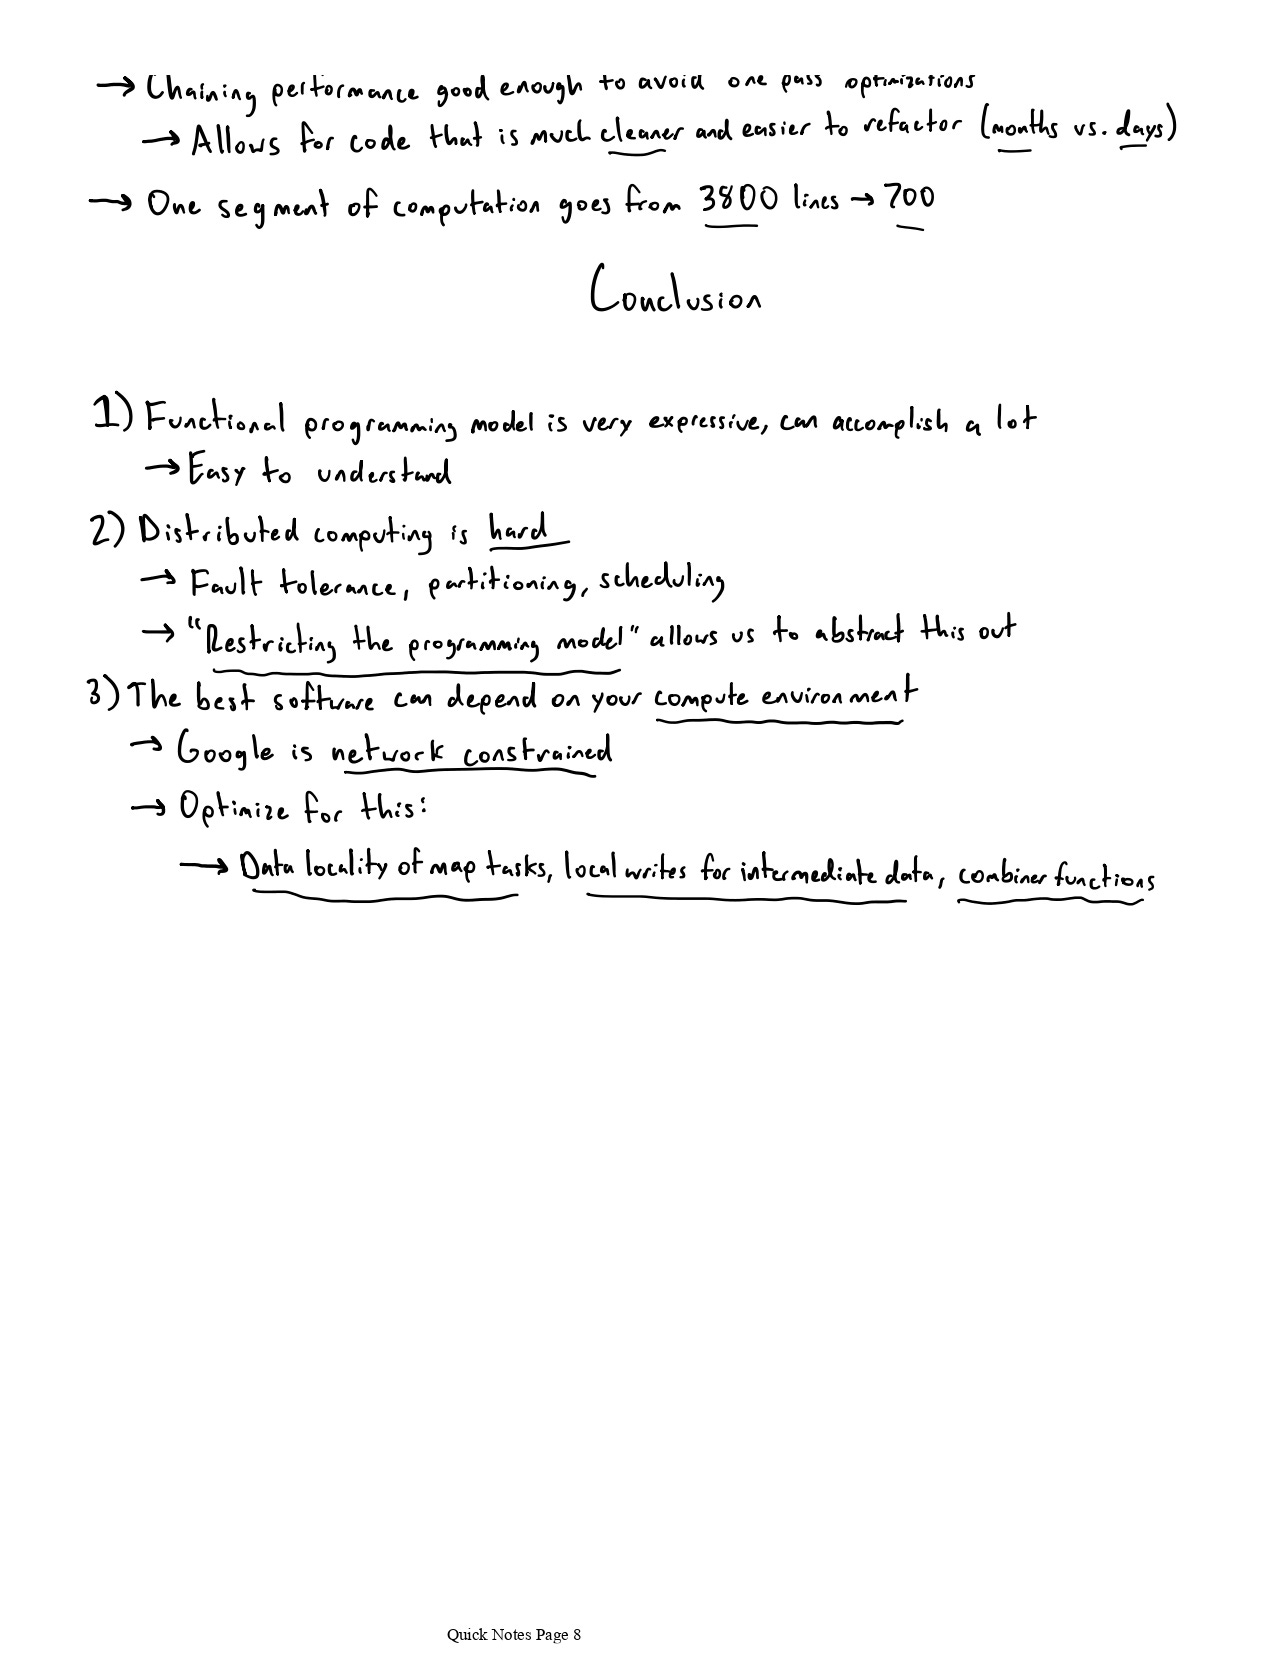 → Chaining performance good enough to avoid one pass optimizations
→ Allows for code that is much cleaner and easier to refactor (months vs. days)
→ One segment of computation goes from 3800 lines → 700
Conclusion
1) Functional programming model is very expressive, can accomplish a lot
→ Easy to understand
2) Distributed computing is hard
→ Fault tolerance, partitioning, scheduling
→ "Restricting the programming model" allows us to abstract this out
3) The best software can depend on your compute environment
→ Google is network constrained
→ Optimize for this:
→ Data locality of map tasks, local writes for intermediate data, combiner functions
Quick Notes Page 8